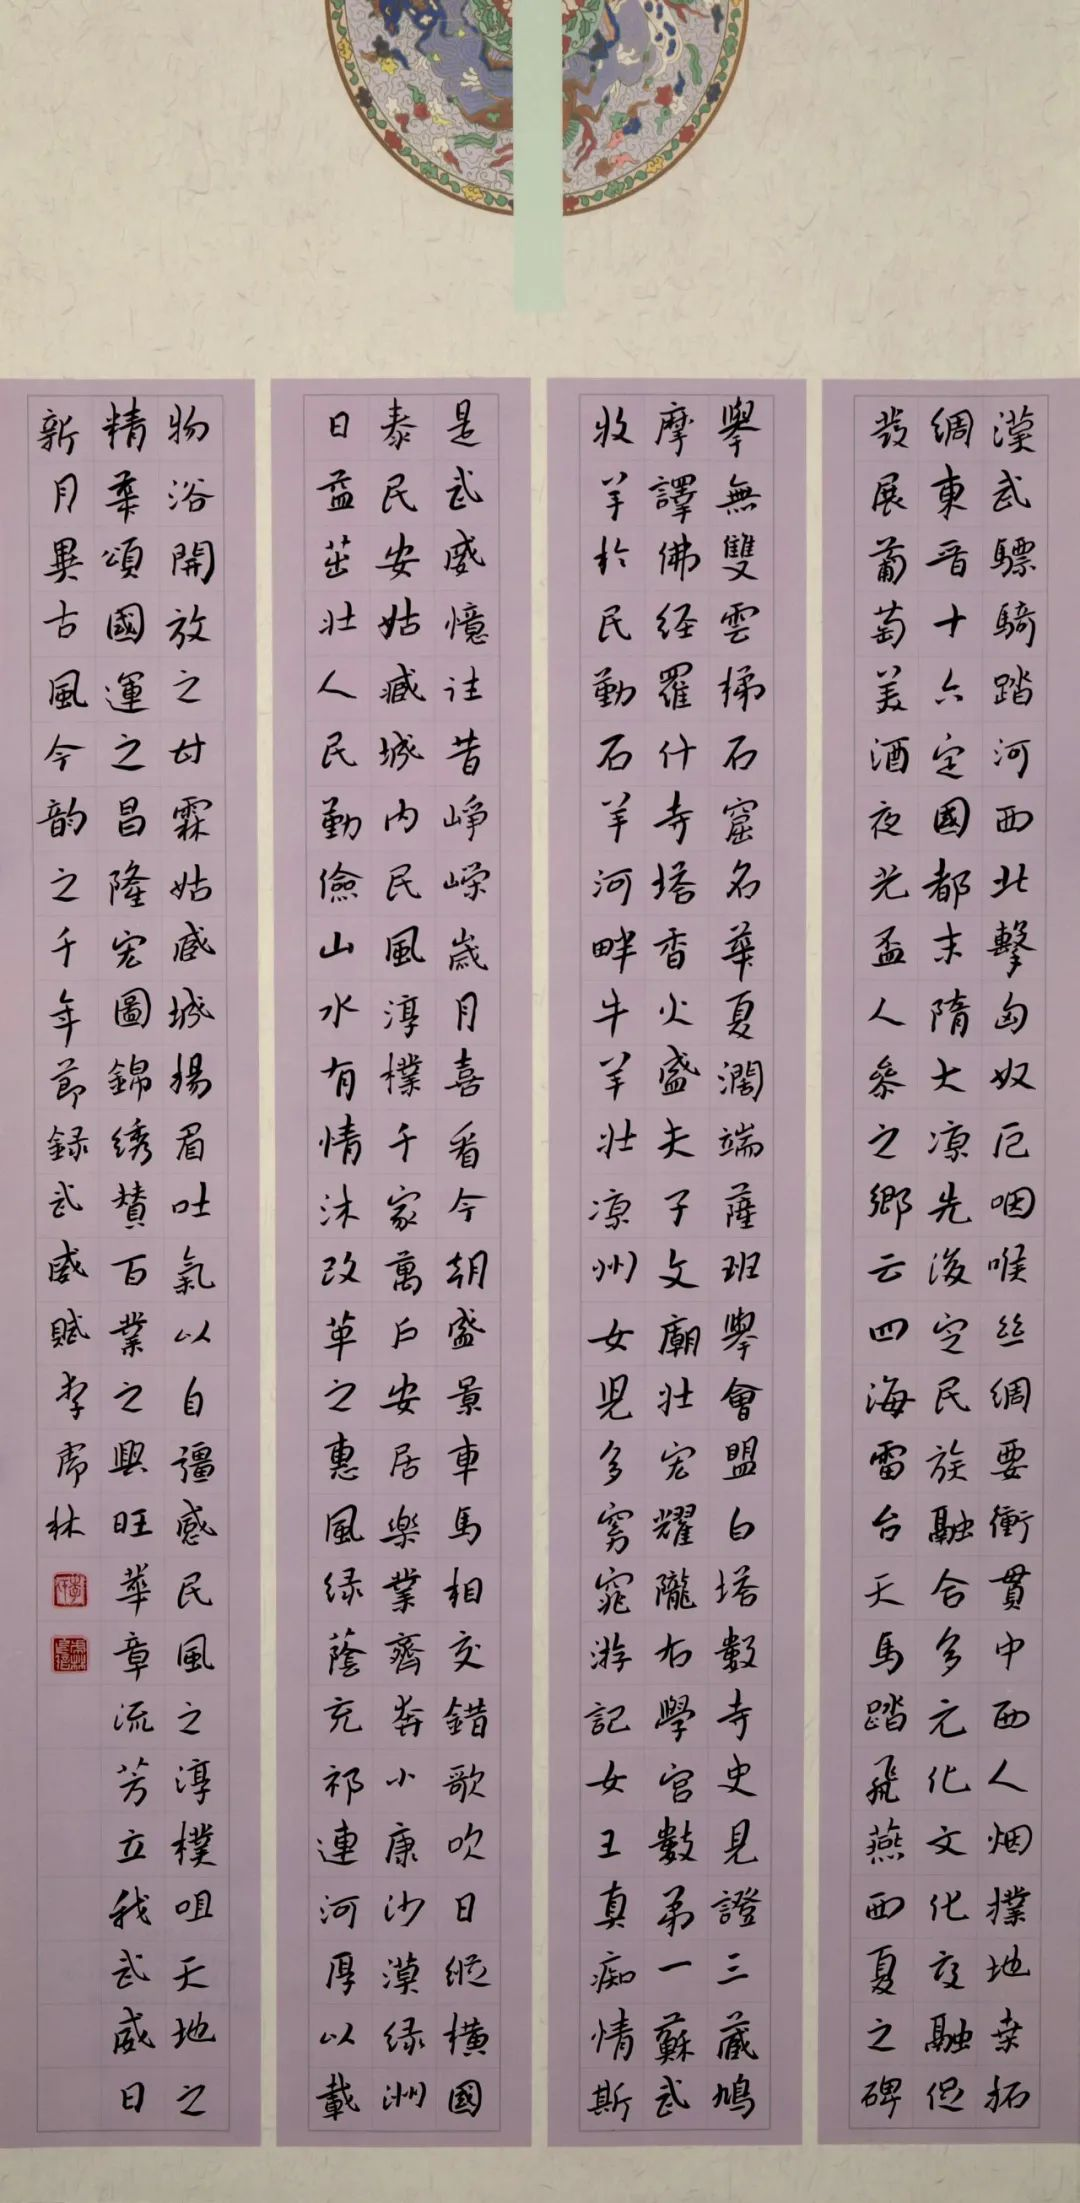 漠武驃騎踏河西北擊匈奴厄咽喉丝綢要衝貫中西人烟撲地桒拓
綢東晋十六定國都末隋大凉先後定民族融合多元化文化交融促
发展葡萄美酒夜光盃人叅之鄉云四海雷台天馬踏飛燕西夏之碑
舉無雙雲梯石窟名華夏濶端薩班舉會盟白塔數寺史見證三藏鳩
摩譯佛经羅什寺塔香火盛夫子文廟壮宏耀隴右學宫數弟一蘇武
牧羊於民勤石羊河畔牛羊壮凉州女児多窈窕游記女王真痴情斯
是武威憶往昔峥嵘崴月喜看今朝盛景車馬相交錯歌吹日縱橫國
泰民安姑臧城内民風淳樸千家萬户安居樂業齊奔小康沙漠绿洲
日益茁壮人民勤儉山水有情沐改革之惠風绿蔭充祁連河厚以載
物浴開放之甘霖姑臧城揚眉吐氣以自彊感民風之淳樸咀天地之
精華頌國運之昌隆宏圖錦绣賛百業之興旺華章流芳立我武威日
新月異古風今韵之千年節録武威賦李虎林